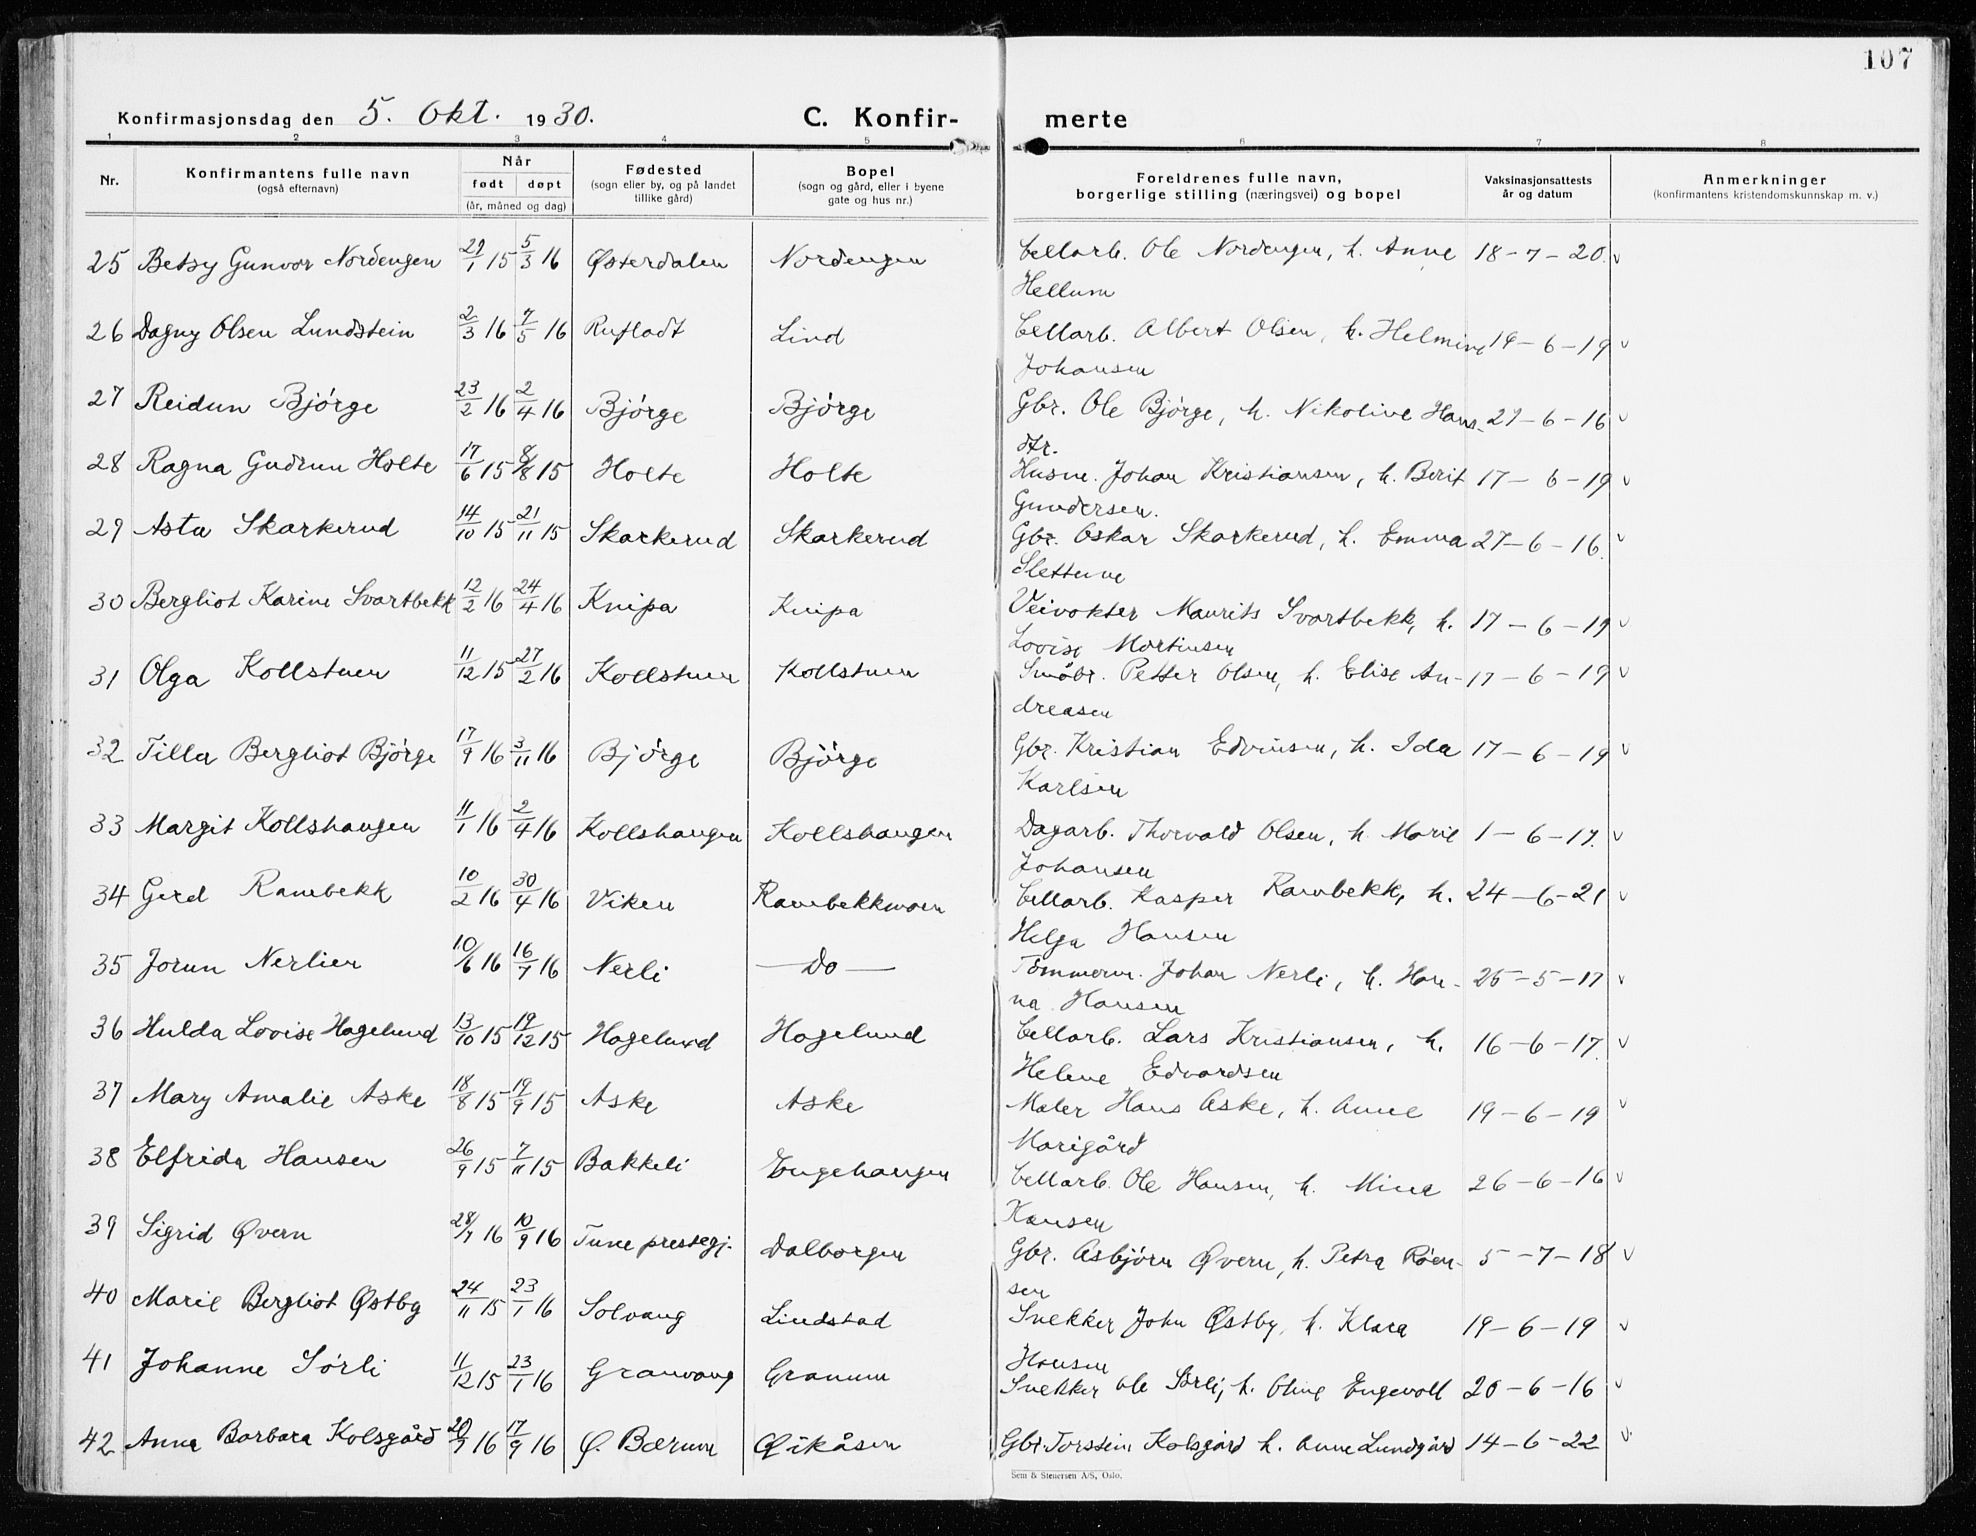 107
Konfirmasjonsdag den 5. Okt. 1930. C. Konfir- merte
1 2 3 4 5 6 7 8
Nr. Konfirmantens fulle navn (også efternavn) Når født døpt (år, måned og dag) Fødested (sogn eller by, og på landet tillike gård) Bopel (sogn og gård, eller i byene gate og hus nr.) Foreldrenes fulle navn, borgerlige stilling (næringsvei) og bopel Vaksinasjonsattests år og datum Anmerkninger (konfirmantens kristendomskunnskap m. v.)
25 Betsy Gunvor Nordengen 29/1 15 5/3 16 Østerdalen Nordengen Cellarb. Ole Nordengen, h. Anne 18-7-20. v
Hellum
26 Dagny Olsen Lundstein 2/3 16 7/5 16 Lind Cellarb. Albert Olsen, h. Helmine 19-6-19 v
Johansen
27 Reidun Bjørge 23/2 16 2/4 16 Bjørge Bjørge Gbr. Ole Bjørge, h. Nikoline Hans- 27-6-16 v
dtr.
28 Ragna Gudrun Holte 17/6 15 8/8 15 Holte Holte Husm. Johan Kristiansen, h. Berit 17-6-19 v
Gundersen.
29 Asta Skarkerud 14/10 15 21/11 15 Skarkerud Skarkerud Gbr. Oskar Skarkerud, h. Emma 27-6-16. v
Sletterne
30 Bergliot Karine Svartbekk 12/2 16 24/4 16 Knipa Knipa Veivokter Maurits Svartbekk, h. 17-6-19 v
Lovise Martinsen
31 Olga Kollstuen 11/12 15 27/2 16 Kollstuen Kollstuen Småbr. Petter Olsen, h. Elise An- 17-6-19 v
dreasen
32 Tilla Bergliot Bjørge 17/9 16 3/11 16 Bjørge Bjørge Gbr. Kristian Edvinsen, h. Ida 17-6-19 v
Karlsen
33 Margit Kollshaugen 11/1 16 2/4 16 Kollshaugen Kollshaugen Dagarb. Thorvald Olsen, h. Marie 1-6-17. v
Johansen
34 Gerd Rambekk 10/2 16 30/4 16 Viken Rambekkmoen Cellarb. Kasper Rambekk, h. 24-6-21 v
Helga Hansen
35 Jorun Nerlien 10/6 16 16/7 16 Nerli — Do — Tømmerm. Johan Nerli, h. Han- 25-5-17 v
na Hansen
36 Hulda Lovise Hagelund 13/10 15 19/12 15 Hagelund Hagelund Cellarb. Lars Kristiansen, h. 16-6-17. v
Helene Edvardsen
37 Mary Amalie Aske 18/8 15 19/9 15 Aske Aske Maler Hans Aske, h. Anne 19-6-19 v
Marigård
38 Elfrida Hansen 26/9 15 7/11 15 Bakkeli Engehaugen Cellarb. Ole Hansen, h. Mina 26-6-16 v
Hansen
39 Sigrid Øvern 28/7 16 10/9 16 Tune prestegj. Dalborgen Gbr. Asbjørn Øvern, h. Petra Røen- 5-7-18 v
sen
40 Marie Bergliot Østby 24/11 15 23/1 16 Solvang Lindstad Snekker John Østby, h. Klara 19-6-19 v
Hansen
41 Johanne Sørli 11/12 15 23/1 16 Granvang Granum Snekker Ole Sørli, h. Oline Engevoll 20-6-16 v
42 Anna Barbara Kolsgård 20/7 16 17/9 16 Ø. Bærum Øikåsen Gbr. Torstein Kolsgård h. Anne Lundgård 14-6-22 v
Sem & Stenersen A/S, Oslo.